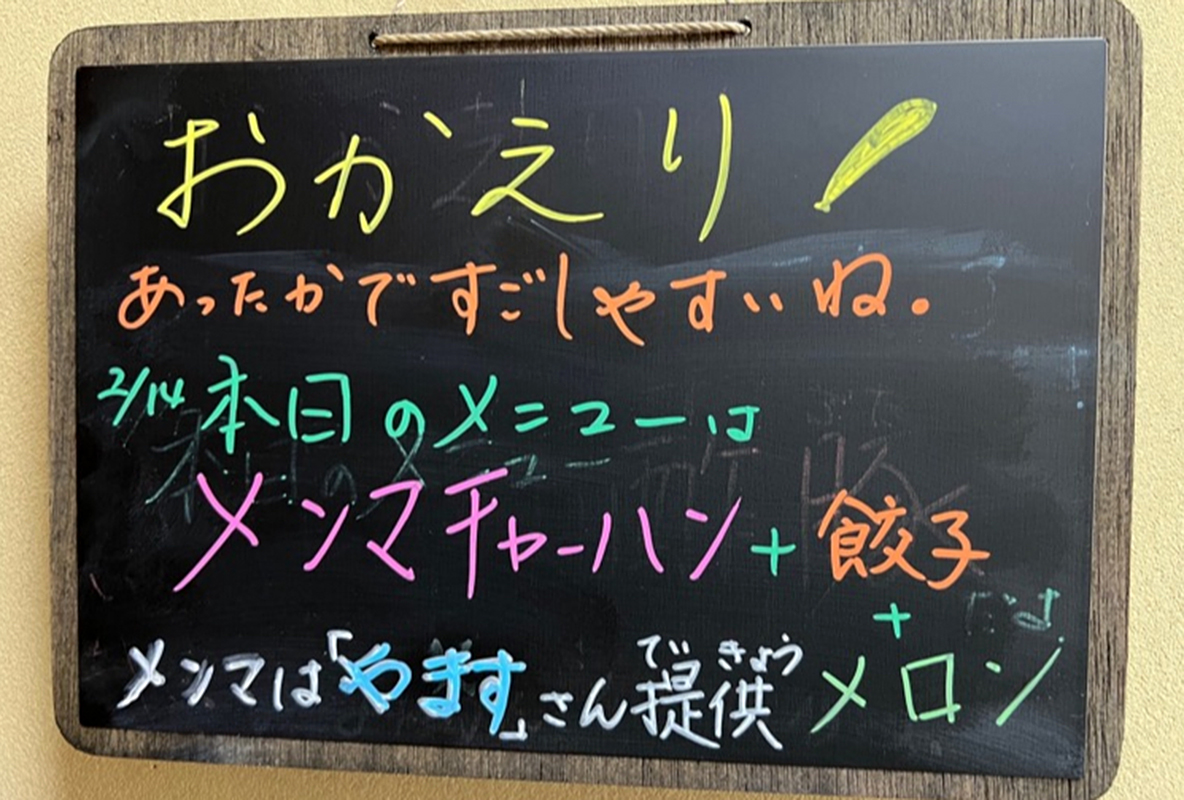 おかえり！
あったかですごしやすいね。
2/14 本日のメニューは
メンマチャーハン+餃子
+メロン
メンマは「やます」さん提供
ていきょう